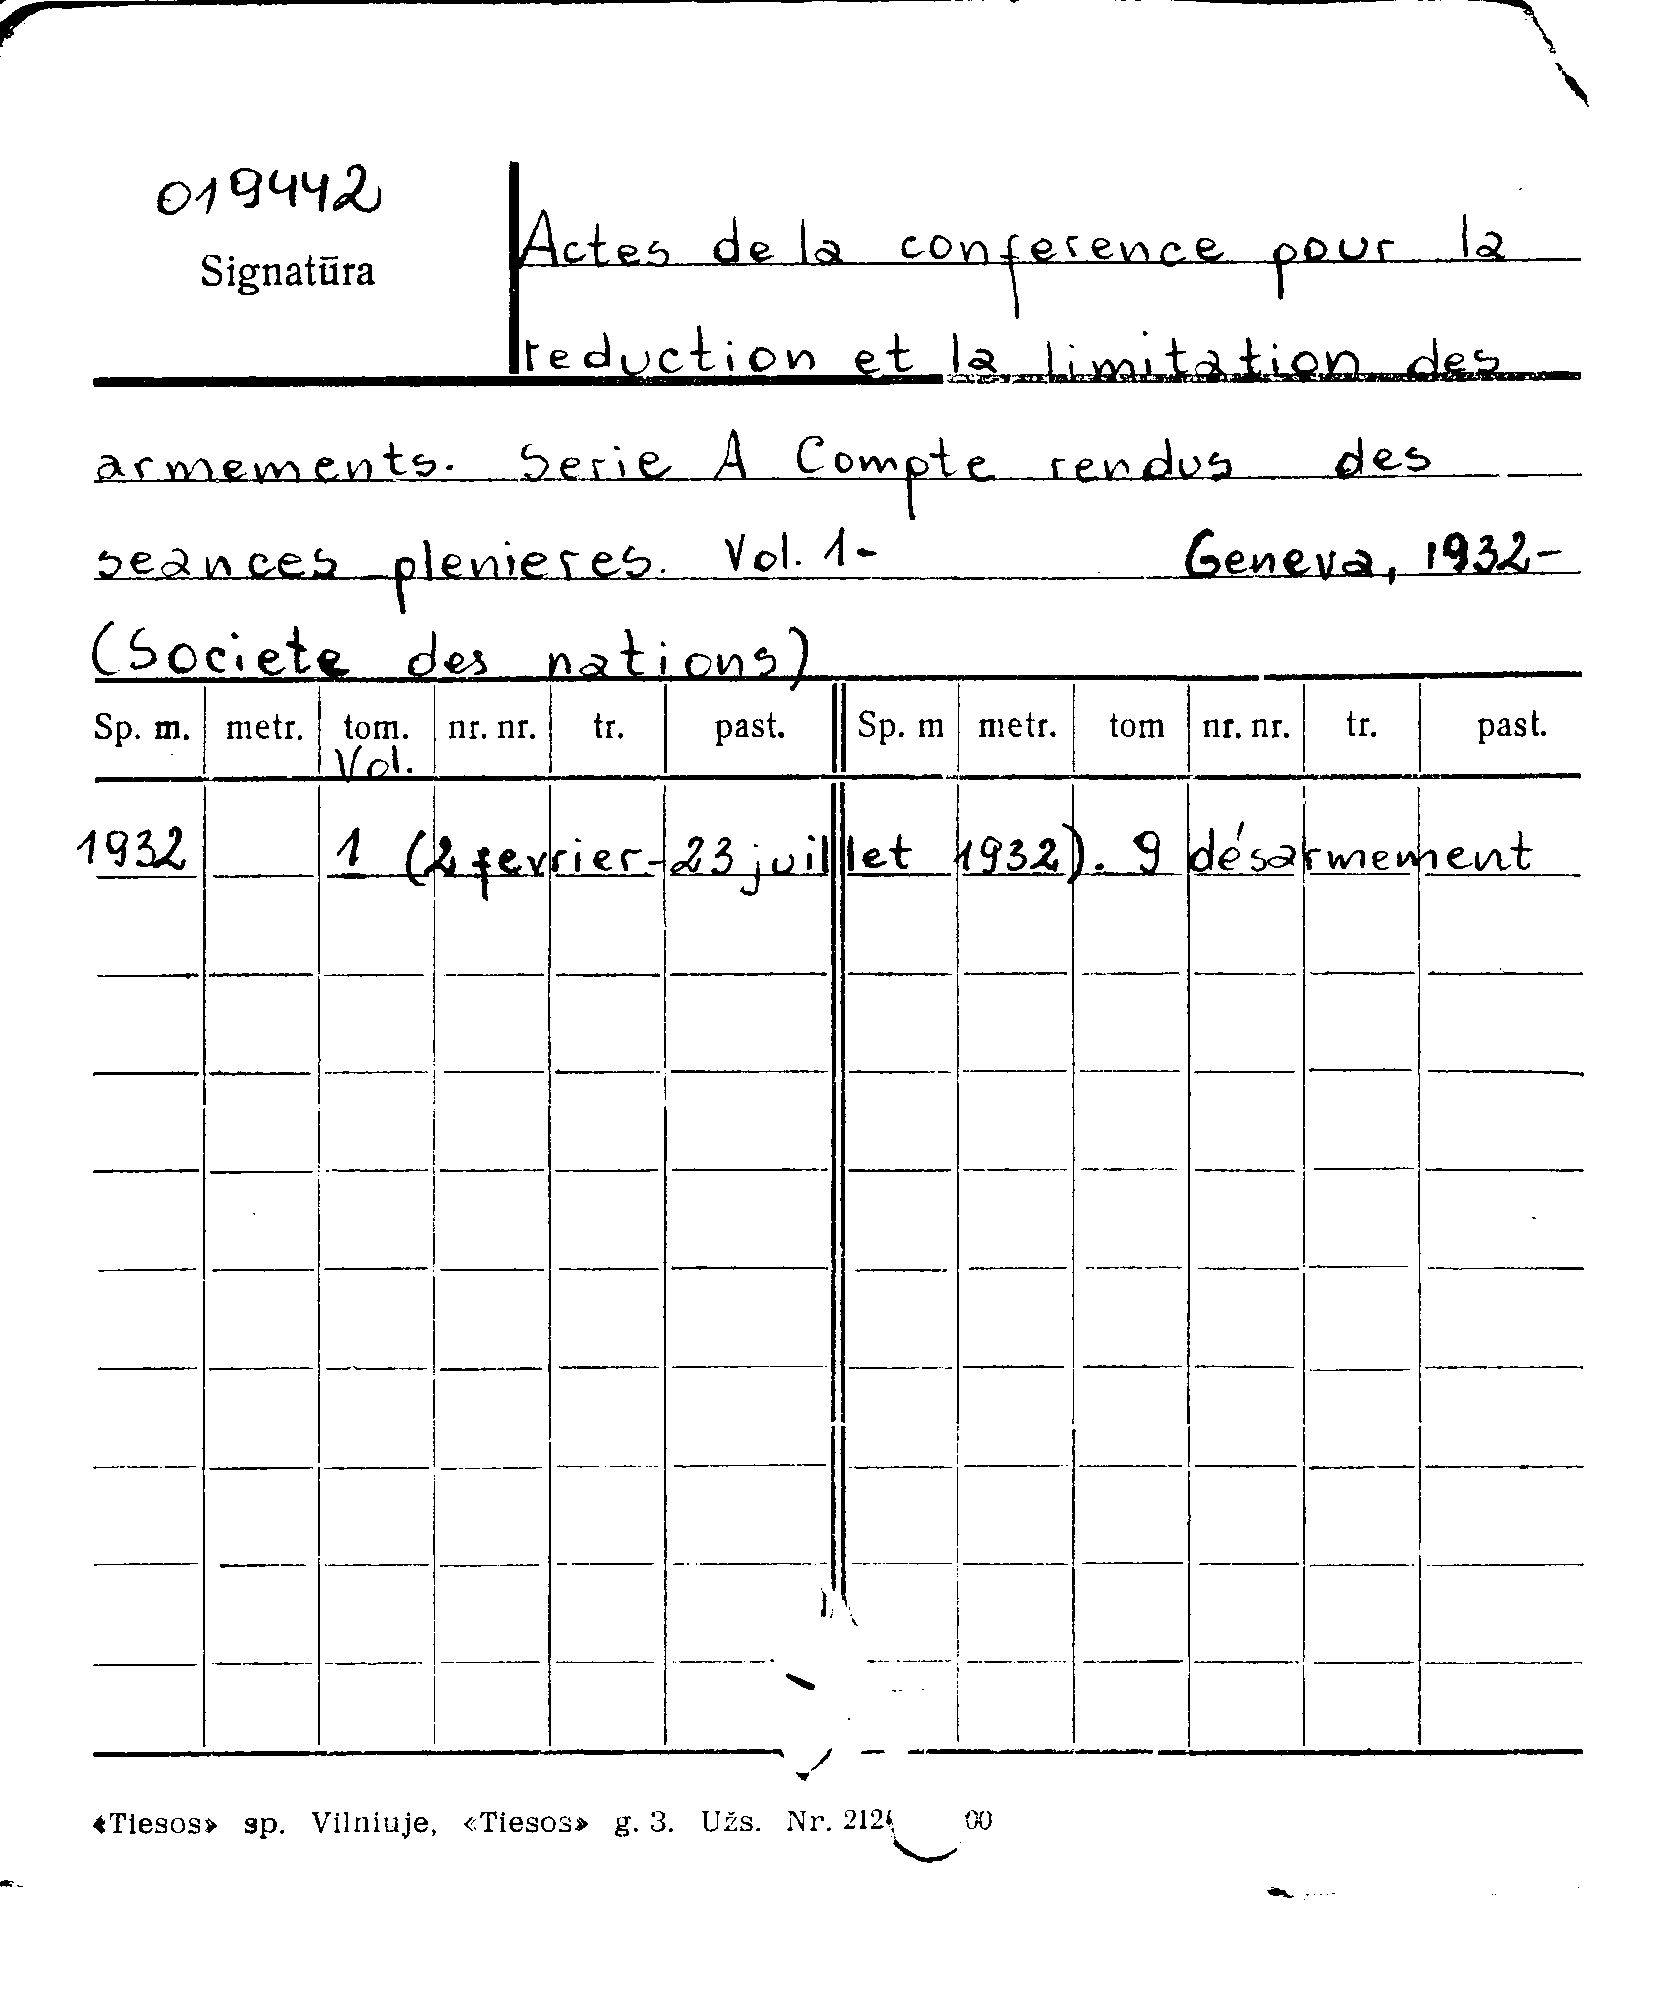 019442
Signatūra
Actes de la conference pour la
reduction et la limitation des
armements. Serie A Compte rendus des
seances plenieres. Vol. 1- Geneva, 1932-
(Societe des nations)
Sp. m. metr. tom. nr. nr. tr. past. Sp. m metr. tom nr. nr. tr. past.
Vol.
1932 1 (2 fevrier-23 juillet 1932). 9 désarmement
«Tiesos» sp. Vilniuje, «Tiesos» g. 3. Užs. Nr. 212 00